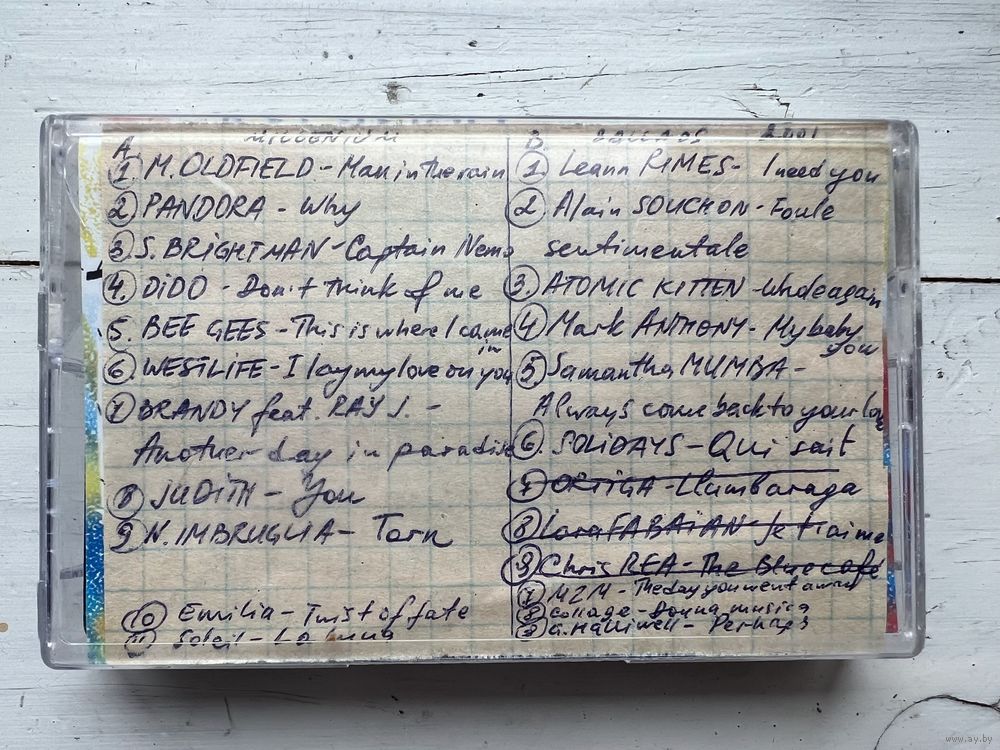 A MILLENIUM
1. M. OLDFIELD - Man in the rain
2 PANDORA - Why
3 S. BRIGHTMAN - Captain Nemo
4. DIDO - Don't think of me
5. BEE GEES - This is where I came
in
6. WESTLIFE - I lay my love on you
7 BRANDY feat. RAY J. -
Another day in paradise
8 JUDITH - You
9 N. IMBRUGLIA - Torn
10 Emilia - Twist of fate
11 Soleil - La
B. BALLADS 2001
1. Leann RIMES - I need you
2 Alain SOUCHON - Foule
sentimentale
3. ATOMIC KITTEN - Whole again
4 Mark ANTHONY - My baby
you
5 Samantha MUMBA -
Always come back to your love
6. SOLIDAYS - Qui sait
7 ORTIGA - Llumbaraga
8 Lara FABAIAN - Je t'aime
9 Chris REA - The Blue cafe
7 M2M - The day you went away
8 Collage - Donna musica
9 G. Halliwell - Perhaps
www.ay.by